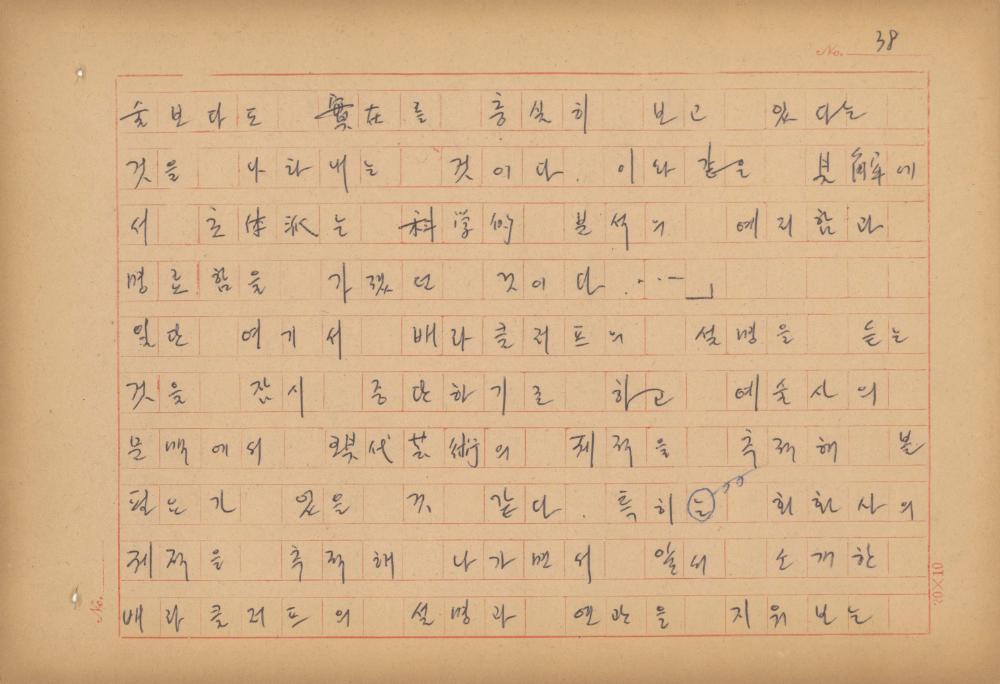 No. 38
술보다도 實在를 충실히 보고 있다는
것을 나타내는 것이다. 이와 같은 見解에
서 立体派는 科学的 분석의 예리함과
명료함을 가졌던 것이다. …」
일단 여기서 배라클러프의 설명을 듣는
것을 잠시 중단하기로 하고 예술사의
문맥에서 現代芸術의 궤적을 추적해 볼
필요가 있을 것 같다. 특히는 회화사의
궤적을 추적해 나가면서 앞서 소개한
배라클러프의 설명과 연관을 지워보는
No.
20×10